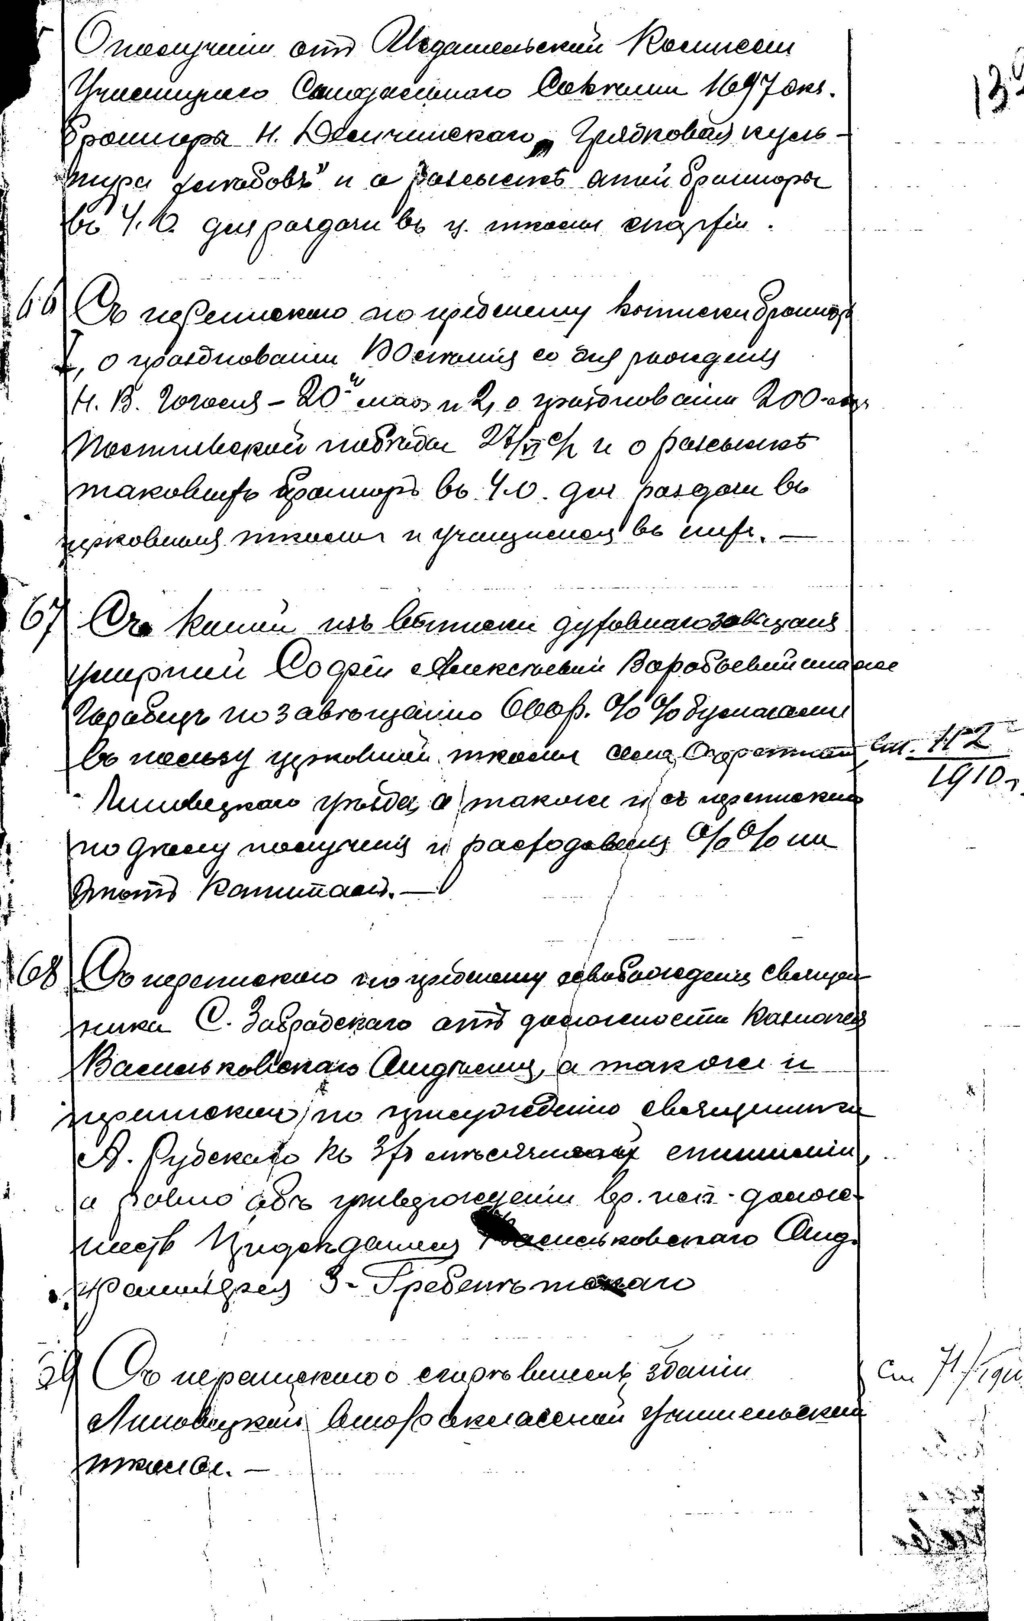 О получении отъ Издательской Комиссии
Училищного Совета 1697 экз.
брошюры Н. "Грядковая куль-
тура хлебовъ" и о разсылкѣ этой брошюры
въ У.О. для раздачи въ ц. школы епархіи.
66 Съ перепискою по предмету выписки брошюръ
1, о праздновании 100 летія со дня рожденія
Н. В. Гоголя – 20го марта и 2, о праздновании 200-лѣт.
Полтавской победы 27/VI с/г и о разсылкѣ
таковыхъ брошюръ въ У.О. для раздачи въ
церковныя школы и учащимся въ нихъ. —
67 Съ копіей изъ выписки духовнаго завѣщанія
умершей Софіи Алексѣевой
по завѣщанію 6000 р. % % бумагами
въ пользу церковной школы села
Липовецкаго уѣзда, а также и съ перепискою
по дѣлу полученія и расходованія % % на
этотъ капиталъ. —
См. 112
1910 г.
68 Съ перепискою по предмету освобожденія священ-
ника С. отъ должности казначея
Васильковскаго Отдѣленія, а также и
перепискою по присужденію священника
А. Рубскаго къ 3хъ мѣсячной епитиміи,
а равно объ утвержденіи вр. исп. долж-
ность Предсѣдателя Васильковскаго Отд.
З. Гребень
69 Съ перепискою о сгорѣвшемъ зданіи
Липовецкой второклассной учительской
школы. —
См 71/191
139